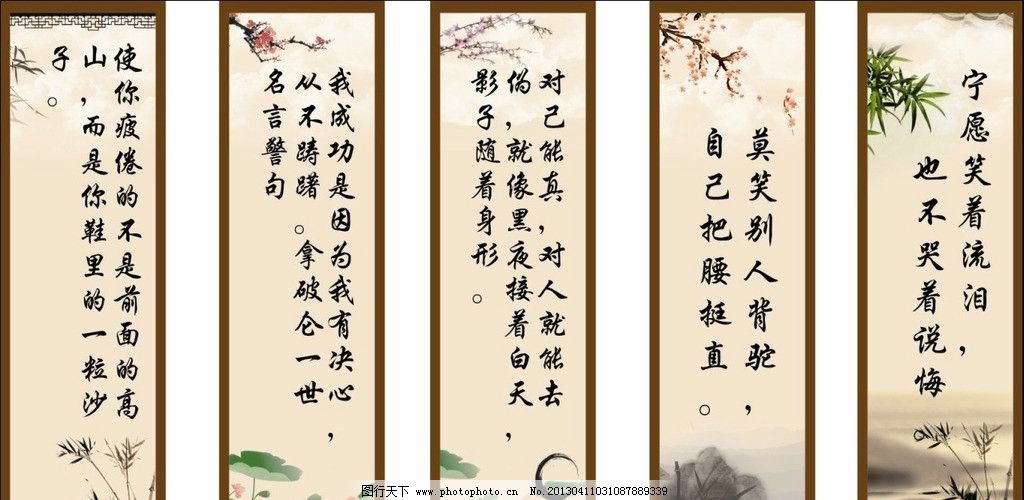 使你疲倦的不是前面的高
山，而是你鞋里的一粒沙
子。
我成功是因为我有决心，
从不踌躇。拿破仑一世
名言警句
对己能真，对人就能去
伪，就像黑夜接着白天，
影子随着身形。
莫笑别人背驼，
自己把腰挺直。
宁愿笑着流泪，
也不哭着说悔。
图行天下 www.photophoto.cn No.20130411031087889339